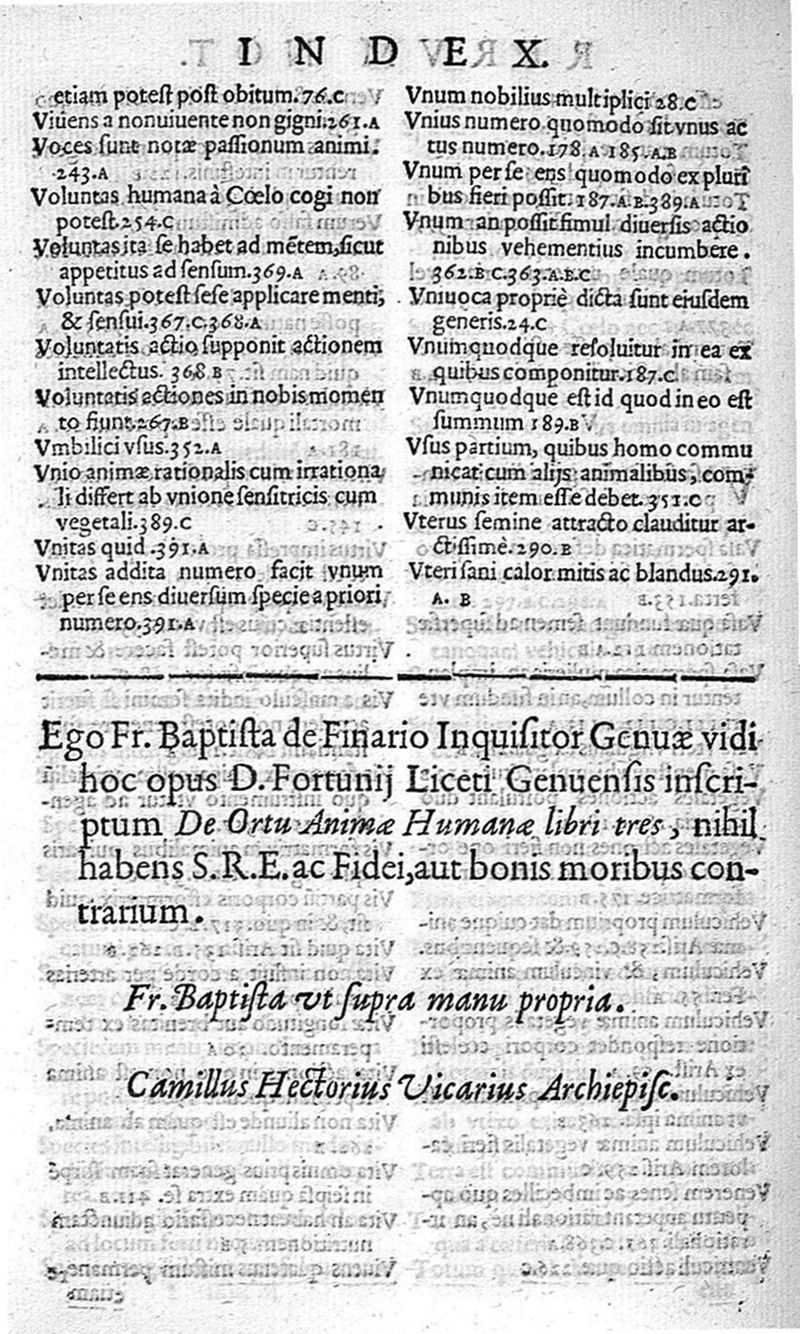 INDEX.
etiam potest post obitum.76.C
Viuens a nonuiuente non gigni.261.A
Voces sunt notæ passionum animi.
243.A
Voluntas humana à Cœlo cogi non
potest.254.C
Voluntas ita se habet ad mẽtem,sicut
appetitus ad sensum.369.A
Voluntas potest sese applicare menti,
& sensui.367.C.368.A
Voluntatis actio supponit actionem
intellectus. 368.B
Voluntatis actiones in nobis momen
to fiunt.267.B
Vmbilici vsus.352.A
Vnio animæ rationalis cum irrationa
li differt ab vnione sensitricis cum
vegetali.389.C
Vnitas quid.391.A
Vnitas addita numero facit vnum
per se ens diuersum specie a priori
numero.391.A
Vnum nobilius multiplici 28.C
Vnius numero quomodo sit vnus ac
tus numero.178.A 185.A.B
Vnum per se ens quomodo ex pluri
bus fieri possit.187.A B.389.A
Vnum an possit simul diuersis actio
nibus vehementius incumbere.
362.B C.363.A.B.C
Vniuoca propriè dicta sunt eiusdem
generis.24.C
Vnumquodque resoluitur in ea ex
quibus componitur.187.C
Vnumquodque est id quod in eo est
summum 189.B
Vsus partium, quibus homo commu
nicat cum alijs animalibus, com-
munis item esse debet.351.C
Vterus semine attracto clauditur ar-
ctissimè.290.B
Vteri sani calor mitis ac blandus.291.
A. B
Ego Fr. Baptista de Finario Inquisitor Genuæ vidi
hoc opus D. Fortunij Liceti Genuensis inscri-
ptum De Ortu Animæ Humanæ libri tres, nihil
habens S.R.E. ac Fidei,aut bonis moribus con-
trarium.
Fr. Baptista vt supra manu propria.
Camillus Hectorius Vicarius Archiepisc.